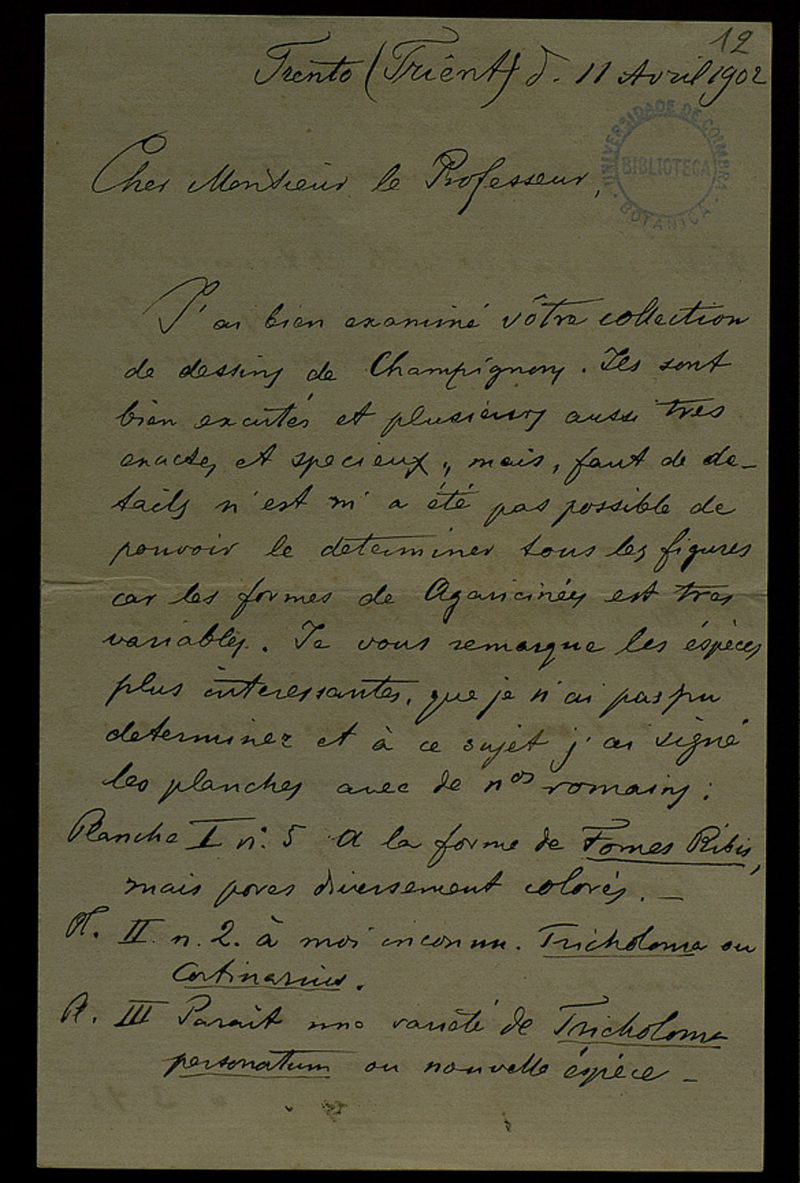 12
Trento (Trient) d. 11 Avril 1902
UNIVERSIDADE DE COIMBRA
BIBLIOTECA
BOTANICA
Cher Monsieur le Professeur,
J'ai bien examiné vôtre collection
de dessins de Champignons. Ils sont
bien excutés et plusieurs aussi tres
exactes et specieux, mais, faut de de-
tails n'est m'a été pas possible de
pouvoir le determiner tous les figures
car les formes de Agaricinées est tres
variables. Je vous remarque les éspèces
plus interessantes, que je n'ai pas pu
determiner et à ce sujet j'ai signé
les planches avec de nos romains:
Planche I n. 5 A la forme de Fomes Ribis,
mais pores diversement colorés. —
Pl. II n. 2. à moi inconnu. Tricholoma ou
Cortinarius.
Pl. III Parait une varieté de Tricholoma
personatum ou nouvelle éspèce —